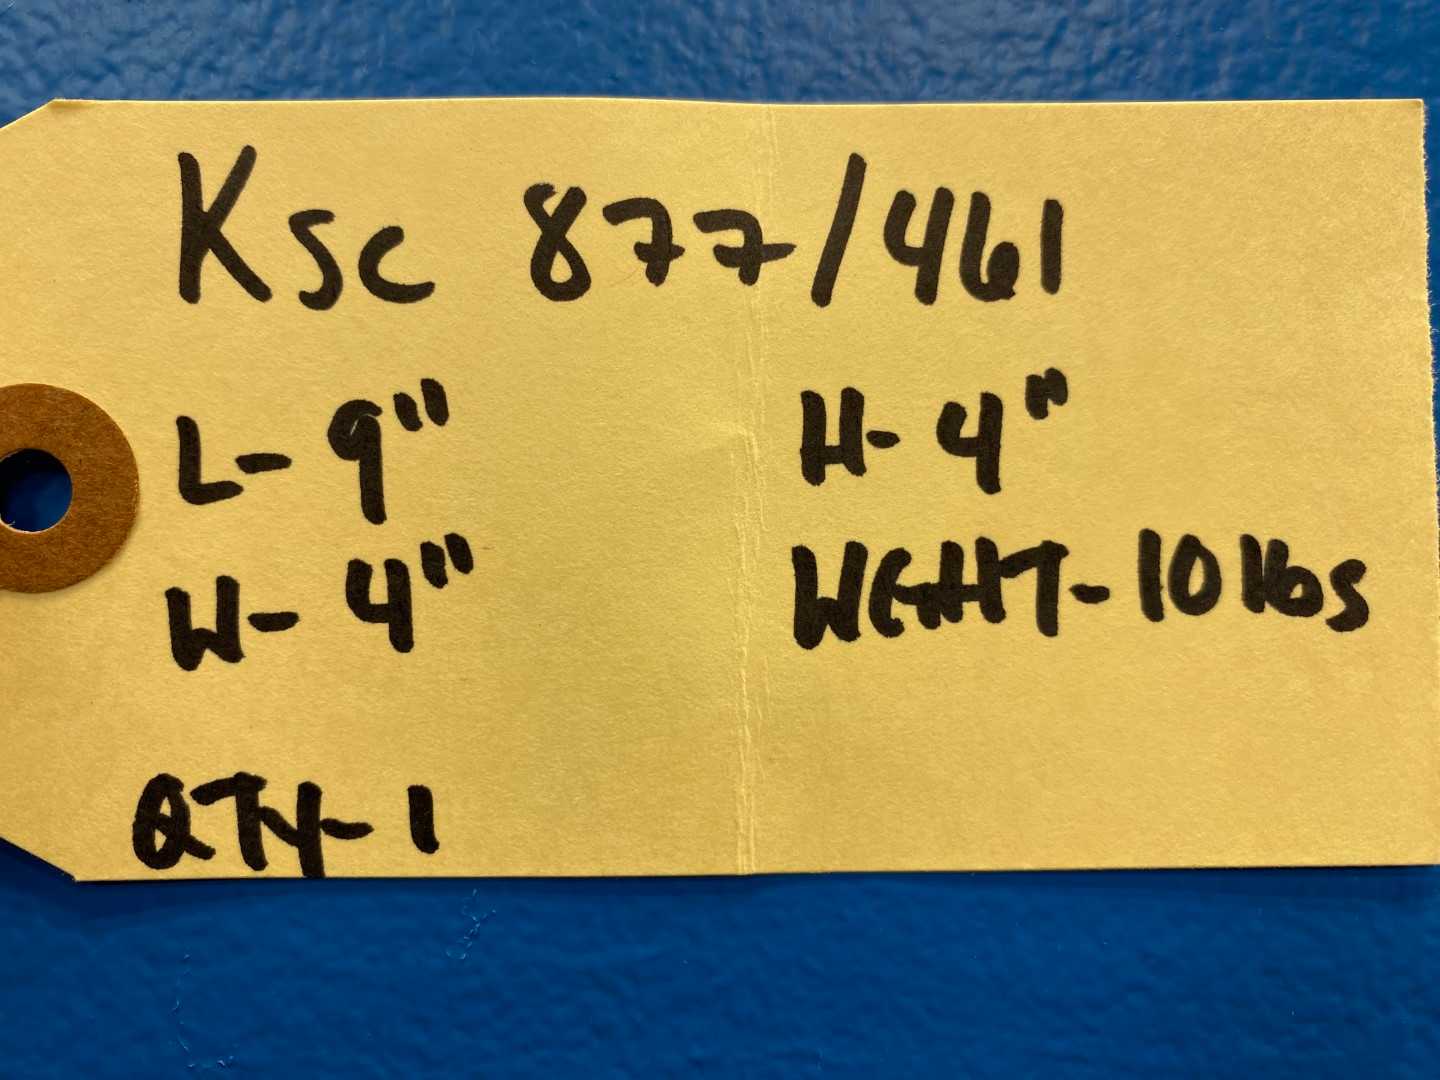 Ksc 877/461
L- 9" H- 4"
W- 4" WGHT- 10 lbs
QTY- 1